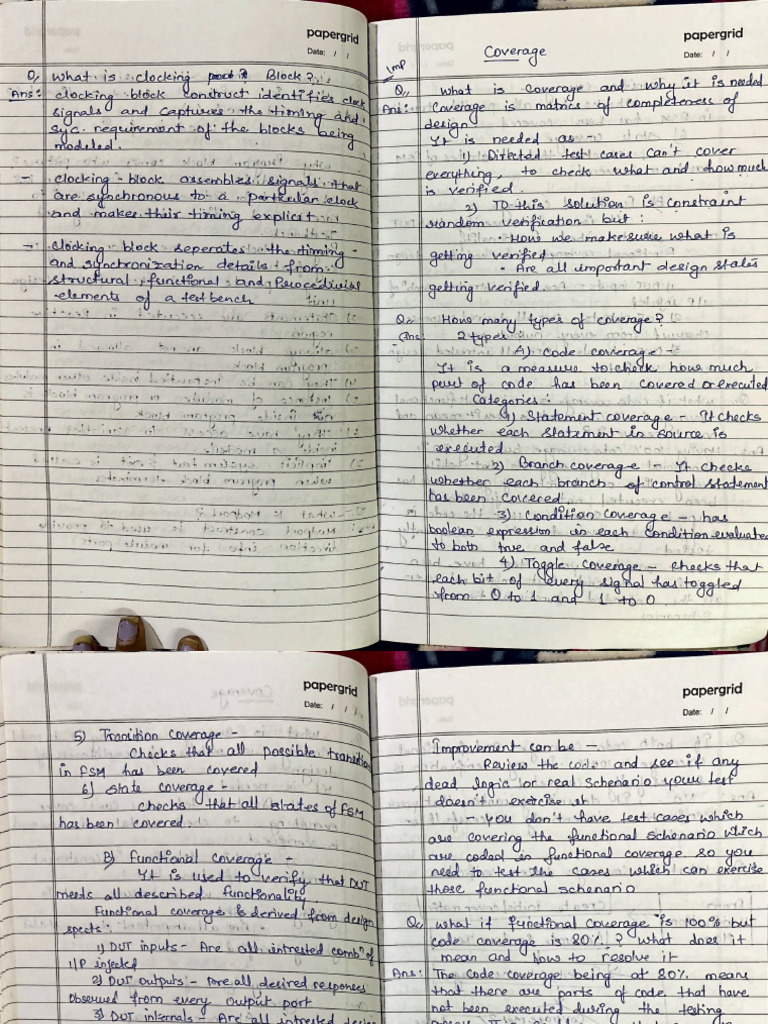 papergrid
Date: / /
Q, What is clocking Block?
Ans: clocking block construct identifies clock
signals and captures the timing and
syc. requirement of the blocks being
modeled.
- clocking-block assembles signals that
are synchronous to a particular clock
and makes their timing explicit
- clocking block seperates the timing
and synchronization details from
structural, functional and Procedural
elements of a testbench
papergrid
Date: / /
Imp
Coverage
Q,, What is coverage and why it is needed
Ans: Coverage is matrics of completeness of
design
It is needed as -
1) Directed test cases can't cover
everything, to check what and how much
is verified.
2) TO this solution is constraint
random verification but :
• How we make sure what is
getting verified
• Are all important design states
getting verified
Q,, How many types of coverage?
Ans: 2 types :
A) code coverage :-
It is a measure to check how much
part of code has been covered or executed
Categories :
1) Statement coverage - It checks
whether each statement in source is
executed
2) Branch coverage - It checks
whether each branch of control statement
has been covered
3) Condition coverage - has
boolean expression in each condition evaluated
to both true and false
4) Toggle coverage - checks that
each bit of every signal has toggled
from 0 to 1 and 1 to 0.
papergrid
Date: / /
5) Transition coverage -
Checks that all possible transition
in FSM has been covered
6) State coverage -
Checks that all states of FSM
has been covered
B) Functional coverage -
It is used to verify that DUT
meets all described functionality
Functional coverage is derived from design
spects :
1) DUT inputs - Are all intrested combn of
I/P injected
2) DUT outputs - Are all desired responses
observed from every output port
3) DUT internals - Are all intrested design
papergrid
Date: / /
Improvement can be -
Review the code and see if any
dead logic or real schenario your test
doesn't exercise it
- you don't have test cases which
are covering the functional schenario which
are coded in functional coverage. so you
need to test the cases which can exercise
those functional schenario
Q,, what if functional coverage is 100% but
code coverage is 80% ? what does it
mean and how to resolve it
Ans: The code coverage being at 80% means
that there are parts of code that have
not been executed during the testing